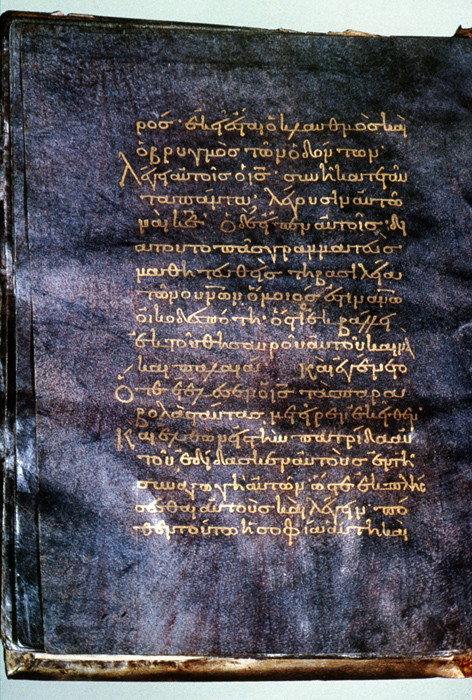 ρός· ἐκεῖ ἔσται ὁ κλαυθμὸς καὶ
ὁ βρυγμὸς τῶν ὀδόντων·
Λέγει αὐτοῖς ὁ ἰς· συνήκατε ταῦ
τα πάντα; λέγουσιν αὐτῶ
ναὶ κε· ὁ δὲ εἶπεν αὐτοῖς· δι
ατουτο πᾶς γραμματεὺς
μαθητευθεὶς τῆ βασιλεία
τῶν οὐνῶν ὅμοιός ἐστιν ἀνω
οἰκοδεσπότη· ὅστις ἐκβάλλει
ἐκ τοῦ θησαυροῦ αὐτοῦ καινὰ
καὶ παλαιά· Καὶ ἐγένετο
ὅτε ἐτέλεσεν ὁ ις τὰς παρα
βολὰς ταύτας μετῆρεν ἐκεῖθεν·
Καὶ ἐλθὼν εἰς τὴν πατρίδα αὐ
τοῦ ἐδίδασκεν αὐτοὺς ἐν τῆ
συναγωγῆ αὐτῶν ὥστε ἐκπλήσ
σεσθαι αὐτοὺς καὶ λέγειν· πό
θεν τούτω ἡ σοφία αὕτη καὶ